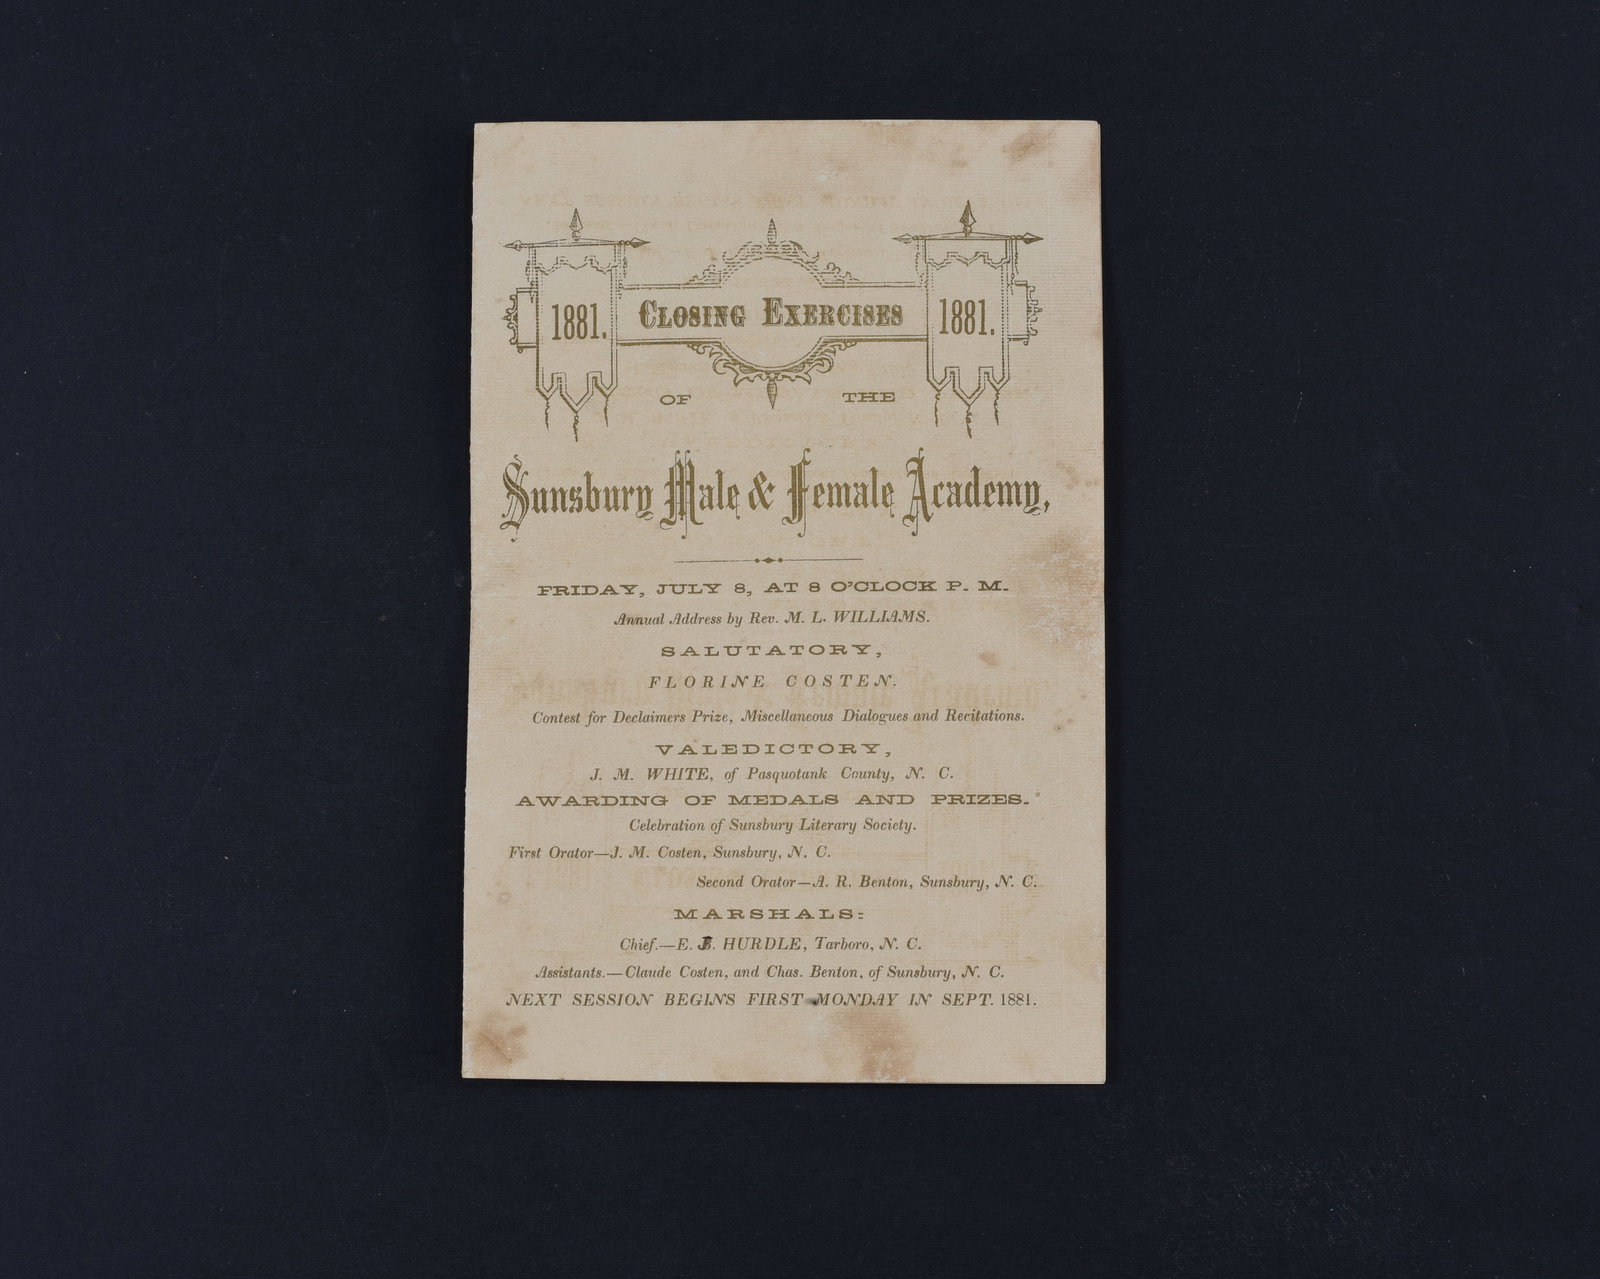 1881. CLOSING EXERCISES 1881.
OF THE
Sunsbury Male & Female Academy,
FRIDAY, JULY 8, AT 8 O'CLOCK P. M.
Annual Address by Rev. M. L. WILLIAMS.
SALUTATORY,
FLORINE COSTEN.
Contest for Declaimers Prize, Miscellaneous Dialogues and Recitations.
VALEDICTORY,
J. M. WHITE, of Pasquotank County, N. C.
AWARDING OF MEDALS AND PRIZES.
Celebration of Sunsbury Literary Society.
First Orator—J. M. Costen, Sunsbury, N. C.
Second Orator—A. R. Benton, Sunsbury, N. C.
MARSHALS:
Chief.—E. HURDLE, Tarboro, N. C.
Assistants.—Claude Costen, and Chas. Benton, of Sunsbury, N. C.
NEXT SESSION BEGINS FIRST MONDAY IN SEPT. 1881.